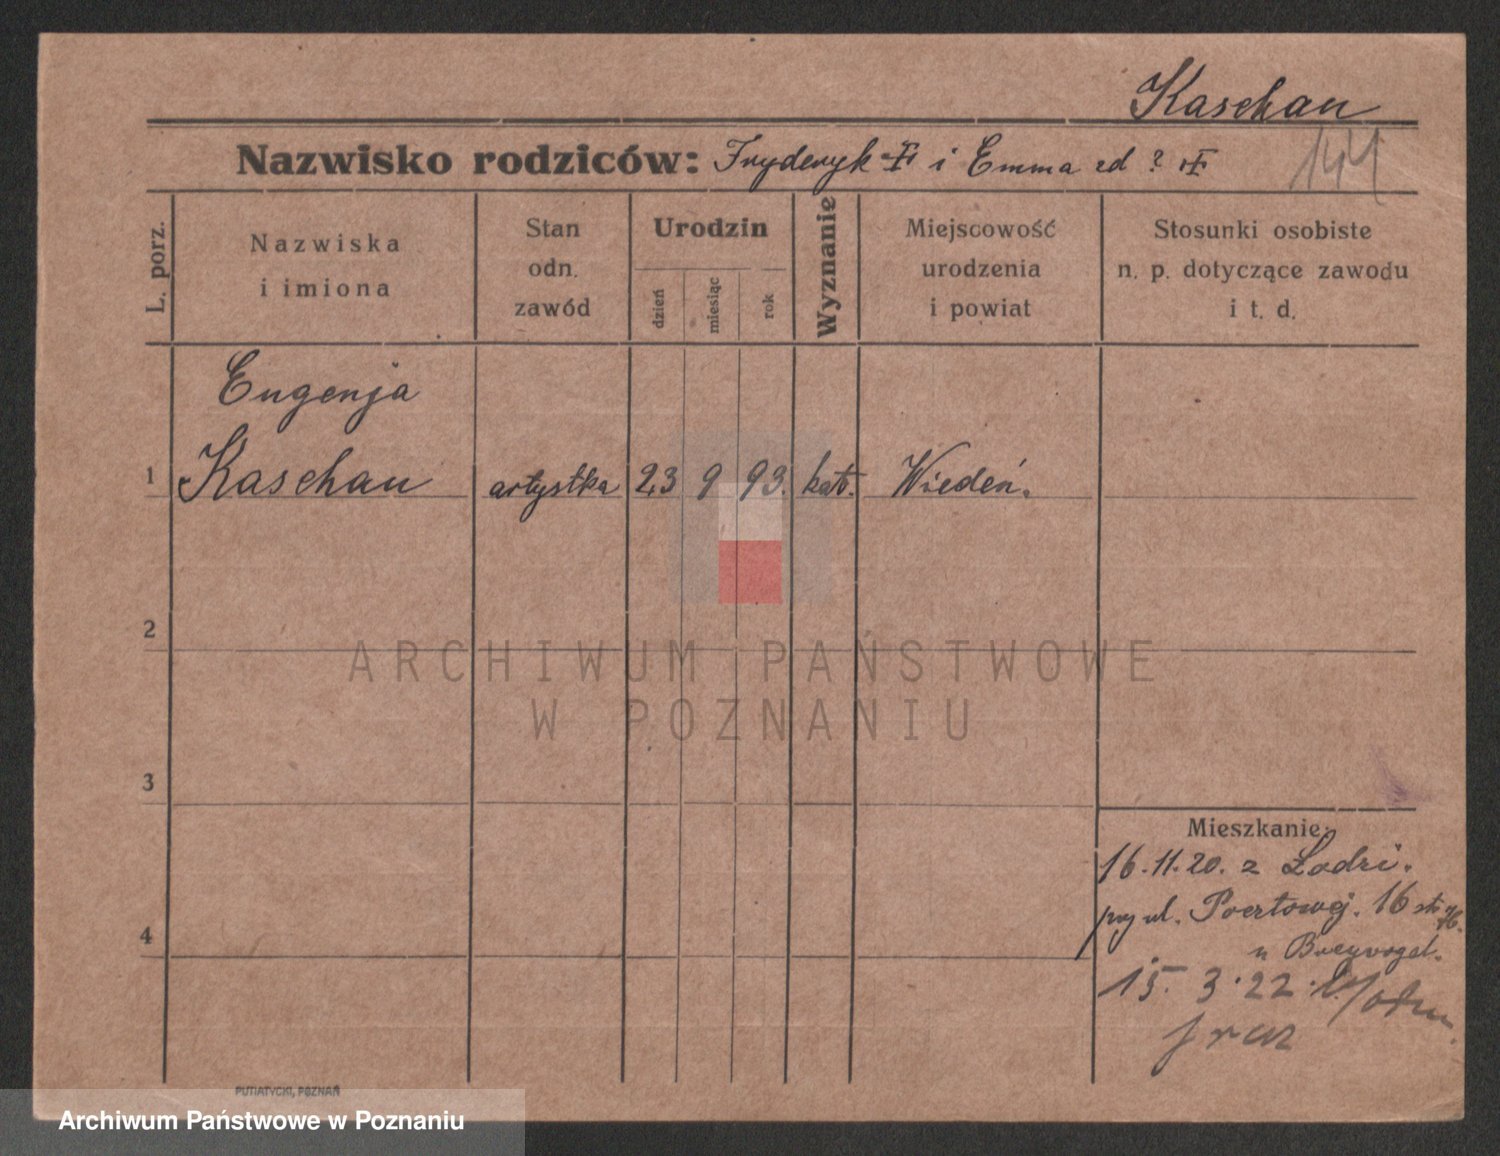 Kaschau
Nazwisko rodziców: Fryderyk i Emma zd ?
144
L. porz.
Nazwiska
i imiona
Stan
odn.
zawód
Urodzin
dzień
miesiąc
rok
Wyznanie
Miejscowość
urodzenia
i powiat
Stosunki osobiste
n. p. dotyczące zawodu
i t. d.
Eugenja
1 Kaschau artystka 23 9 93. kat. Wiedeń.
2
ARCHIWUM PAŃSTWOWE
W POZNANIU
3
Mieszkanie:
16.11.20. z Łodzi.
przy ul. Pocztowej. 16
4
u Breyvogel.
15. 3. 22.
PUTIATYCKI, POZNAŃ
Archiwum Państwowe w Poznaniu